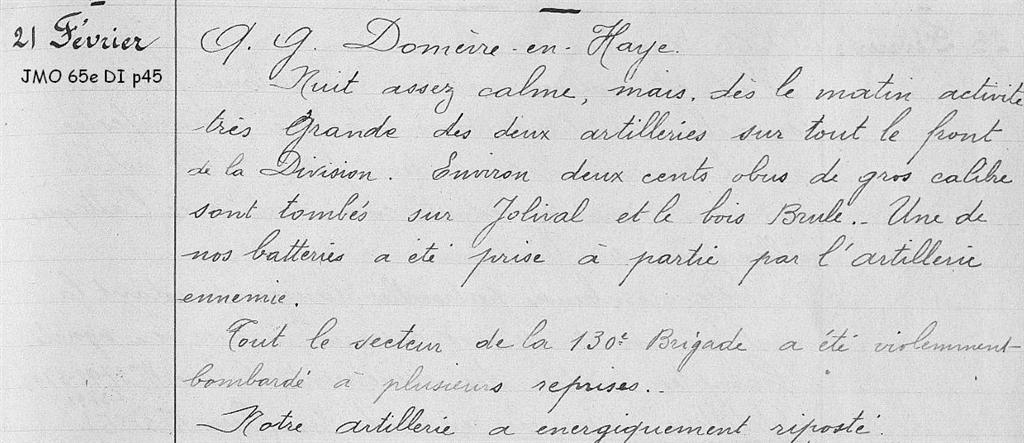 21 Février
JMO 65e DI p45
Q. G. Domèvre-en-Haye.
Nuit assez calme, mais, dès le matin activité
très Grande des deux artilleries sur tout le front
de la Division. Environ deux cents obus de gros calibre
sont tombés sur Jolival et le bois Brulé.. Une de
nos batteries a été prise à partie par l'artillerie
ennemie.
Tout le secteur de la 130e Brigade a été violemment
bombardé à plusieurs reprises..
Notre artillerie a energiquement riposté.